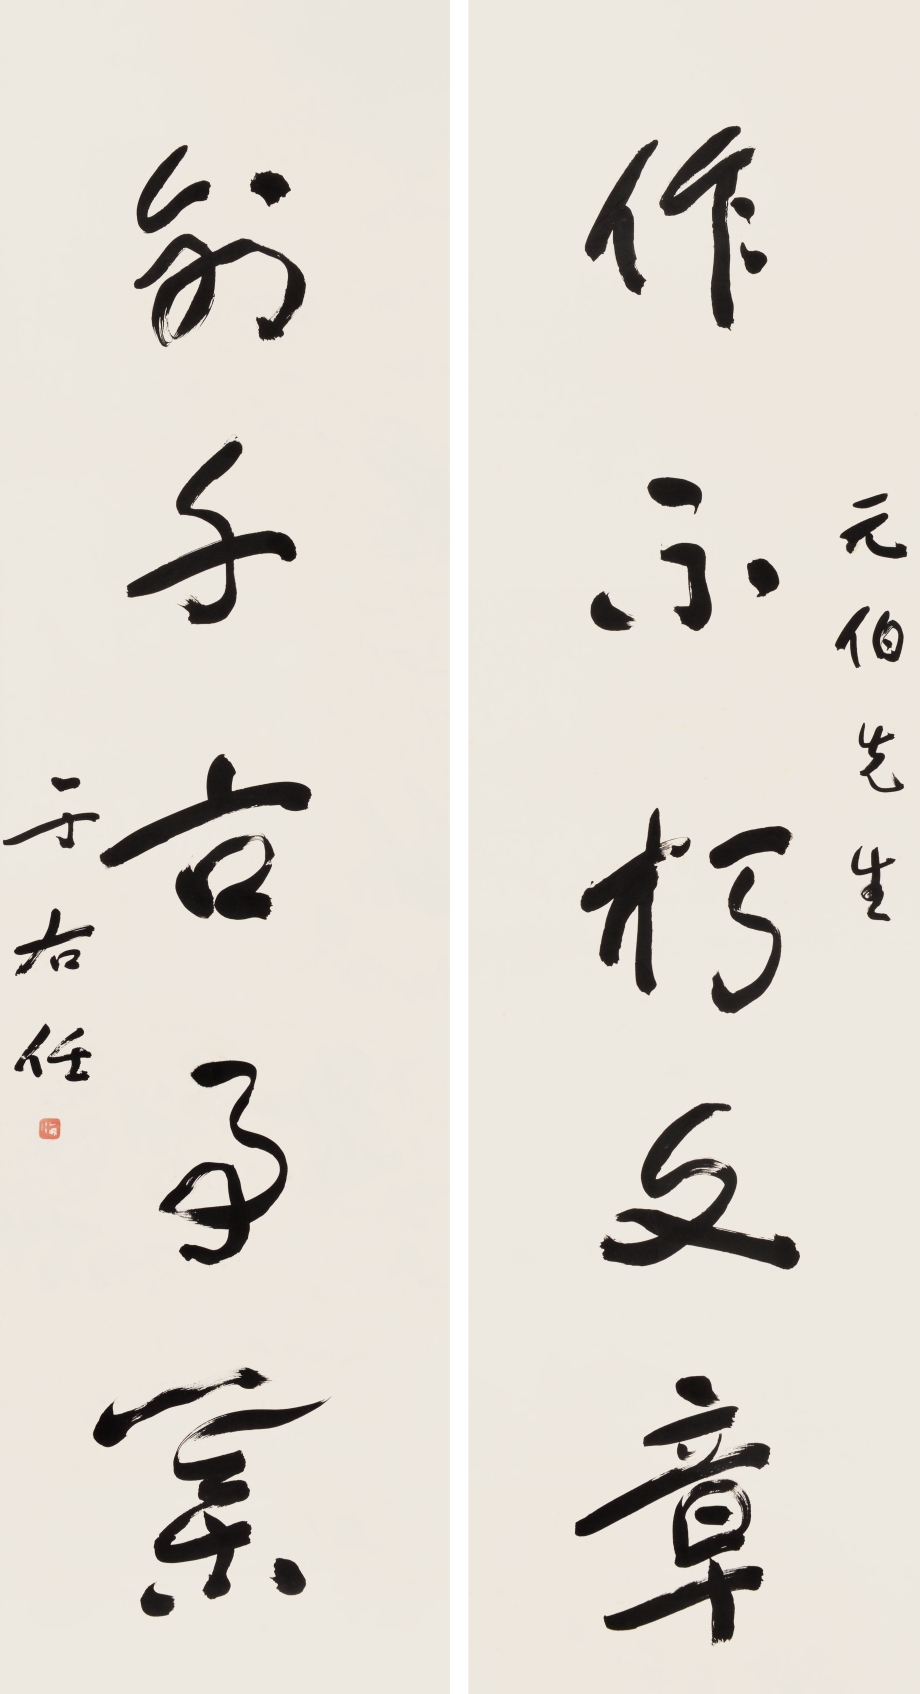 元伯先生
作不朽文章
創千古事業
于右任